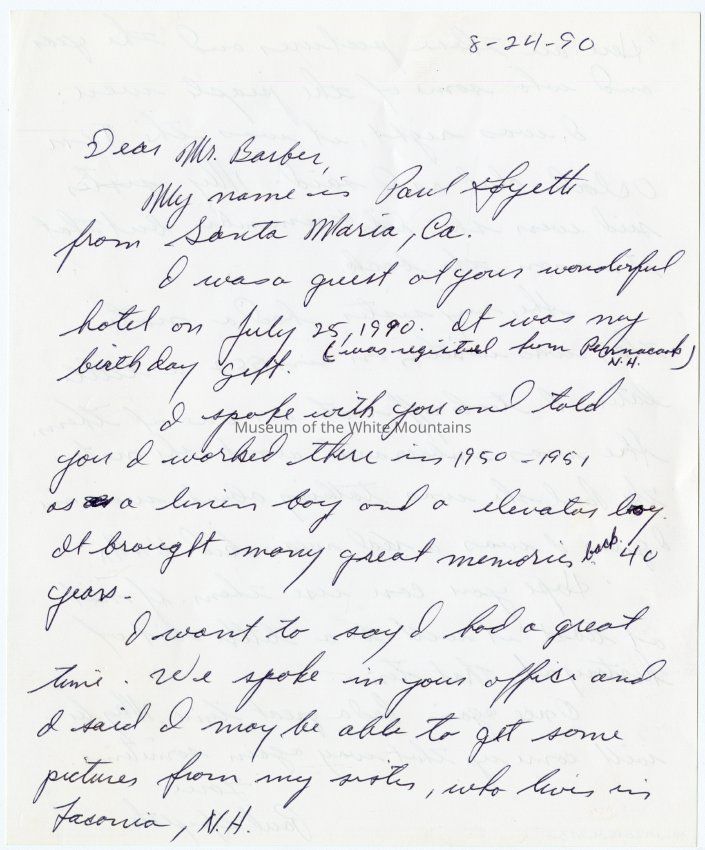 8-24-90
Dear Mr. Barber,
My name is Paul
from Santa Maria, Ca.
I was a guest at your wonderful
hotel on July 25, 1990. It was my
birthday gift. (I was registered from Pennacook)
N.H.
I spoke with you and told
Museum of the White Mountains
you I worked there in 1950-1951
as a linen boy and a elevator boy.
It brought many great memories back 40
years.
I want to say I had a great
time. We spoke in your office and
I said I may be able to get some
pictures from my sister, who lives in
Laconia, N.H.